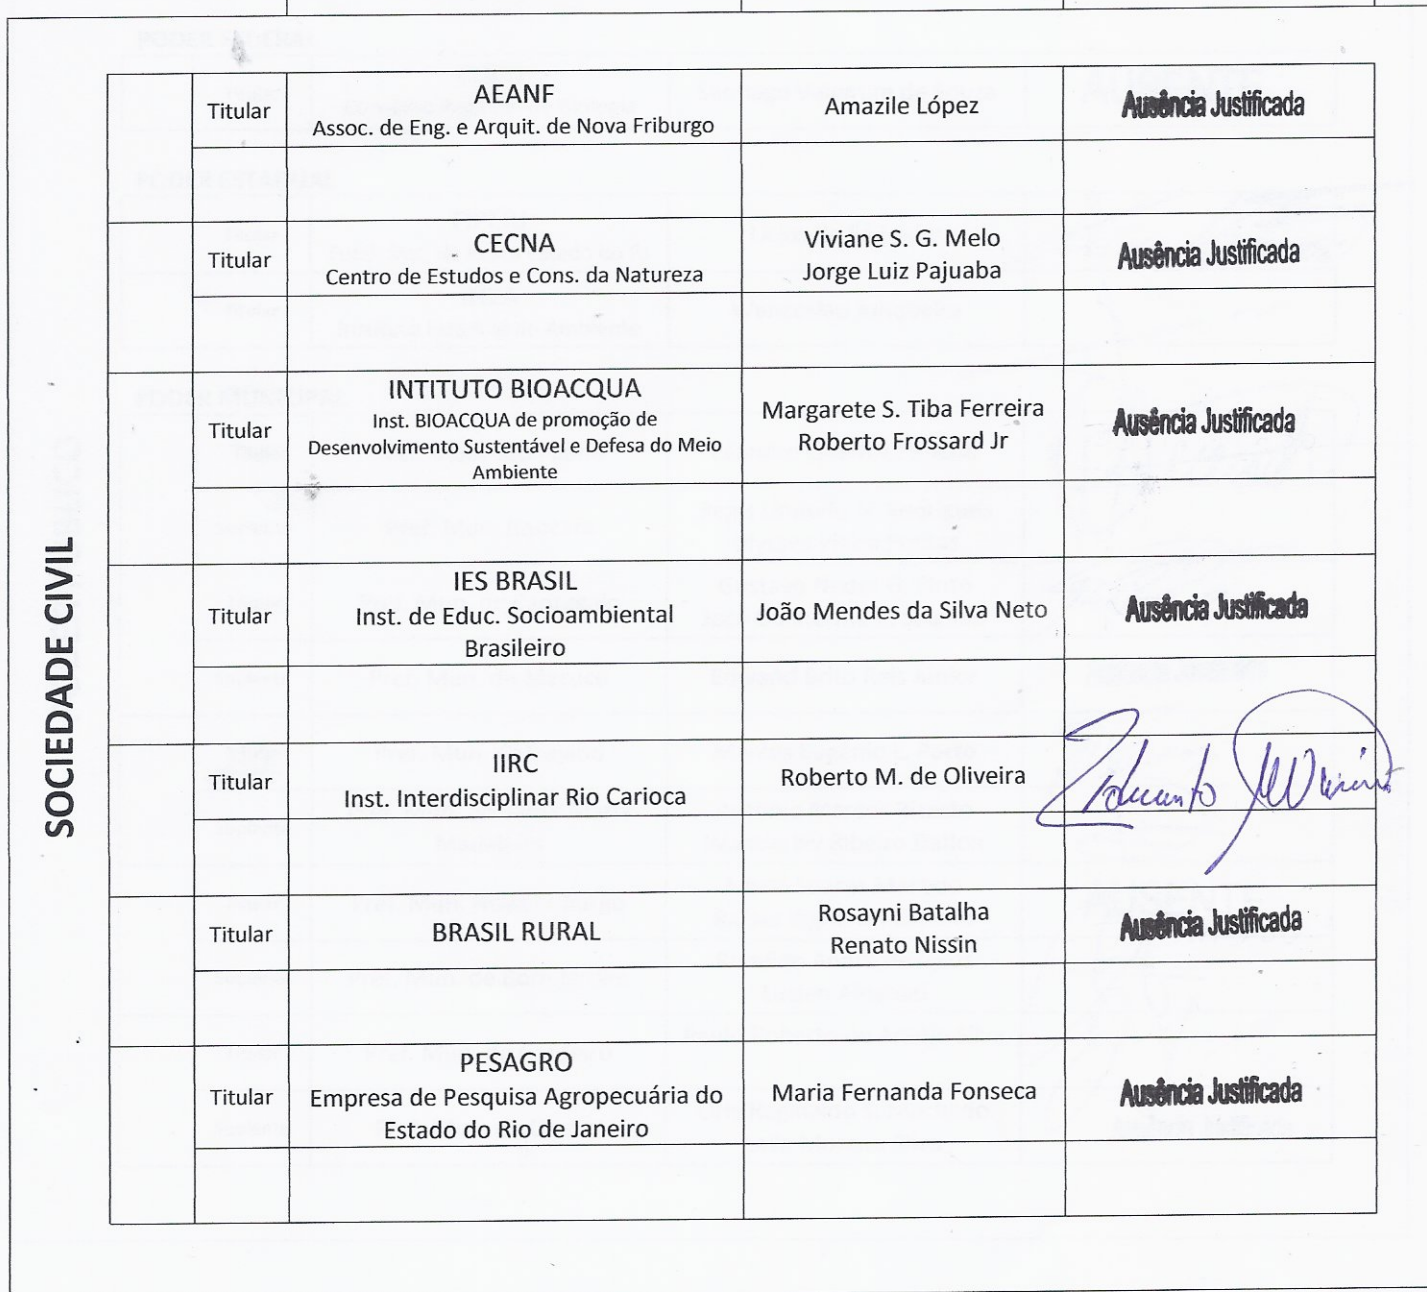 SOCIEDADE CIVIL
Titular
AEANF
Assoc. de Eng. e Arquit. de Nova Friburgo
Amazile López
Ausência Justificada
Titular
CECNA
Centro de Estudos e Cons. da Natureza
Viviane S. G. Melo
Jorge Luiz Pajuaba
Ausência Justificada
Titular
INTITUTO BIOACQUA
Inst. BIOACQUA de promoção de
Desenvolvimento Sustentável e Defesa do Meio
Ambiente
Margarete S. Tiba Ferreira
Roberto Frossard Jr
Ausência Justificada
Titular
IES BRASIL
Inst. de Educ. Socioambiental
Brasileiro
João Mendes da Silva Neto
Ausência Justificada
Titular
IIRC
Inst. Interdisciplinar Rio Carioca
Roberto M. de Oliveira
Titular
BRASIL RURAL
Rosayni Batalha
Renato Nissin
Ausência Justificada
Titular
PESAGRO
Empresa de Pesquisa Agropecuária do
Estado do Rio de Janeiro
Maria Fernanda Fonseca
Ausência Justificada